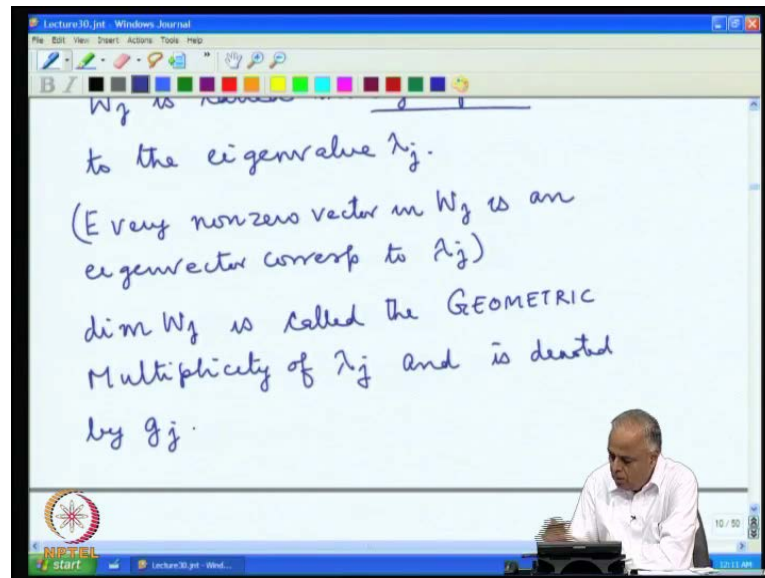 Lecture30.jnt - Windows Journal
File Edit View Insert Actions Tools Help
B I
W_j is called
to the eigenvalue λ_j.
(Every nonzero vector in W_j is an
eigenvector corresp to λ_j)
dim W_j is called the GEOMETRIC
Multiplicity of λ_j and is denoted
by g_j.
10 / 50
NPTEL
start Lecture30.jnt - Wind... 12:11 AM